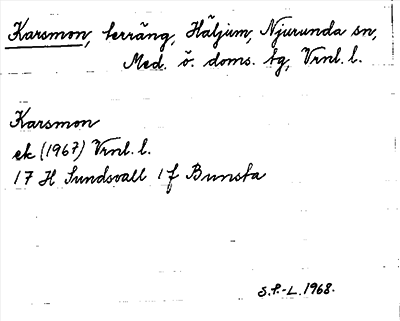 Karsmon, terräng, Häljum, Njurunda sn,
Med. ö. doms. tg, Vrnl. l.
Karsmon
ek (1967) Vrnl. l.
17 H Sundsvall 1 f Bunsta
S.P.-L. 1968.